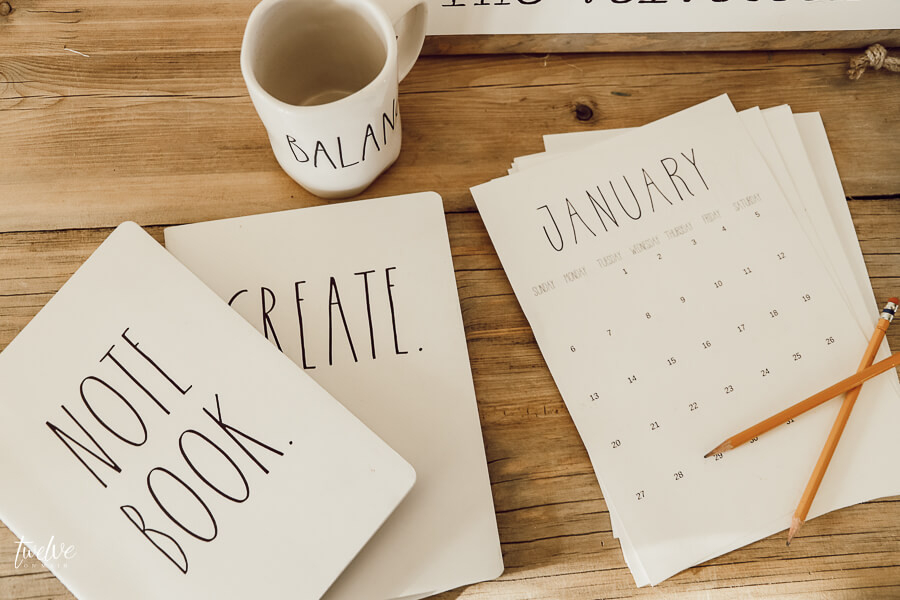 BALAN
NOTE
BOOK.
CREATE.
JANUARY
SUNDAY MONDAY TUESDAY WEDNESDAY THURSDAY FRIDAY SATURDAY
1 2 3 4 5
6 7 8 9 10 11 12
13 14 15 16 17 18 19
20 21 22 23 24 25 26
27 28 29 30 31
twelve